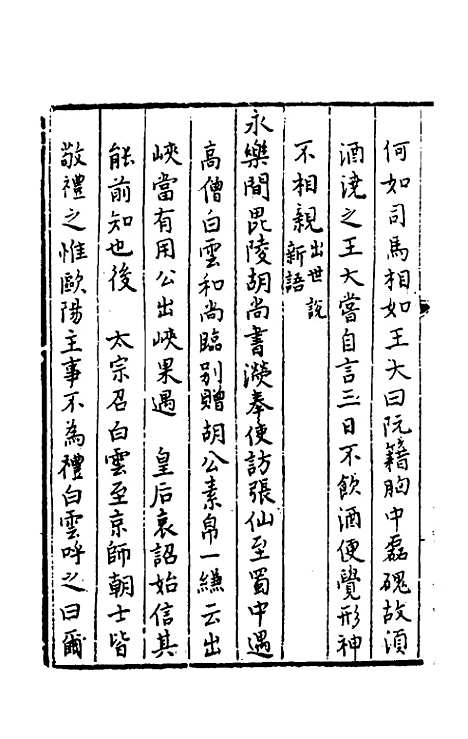 何如司馬相如王大曰阮籍胸中磊磈故湏
酒澆之王大嘗自言三日不飲酒便覺形神
不相親出世說新語
永樂間毘陵胡尚書濙奉使訪張仙至蜀中遇
高僧白雲和尚臨別贈胡公素帛一縑云出
峽當有用公出峽果遇 皇后哀詔始信其
能前知也後 太宗召白雲至京師朝士皆
敬禮之惟歐陽主事不為禮白雲呼之曰爾